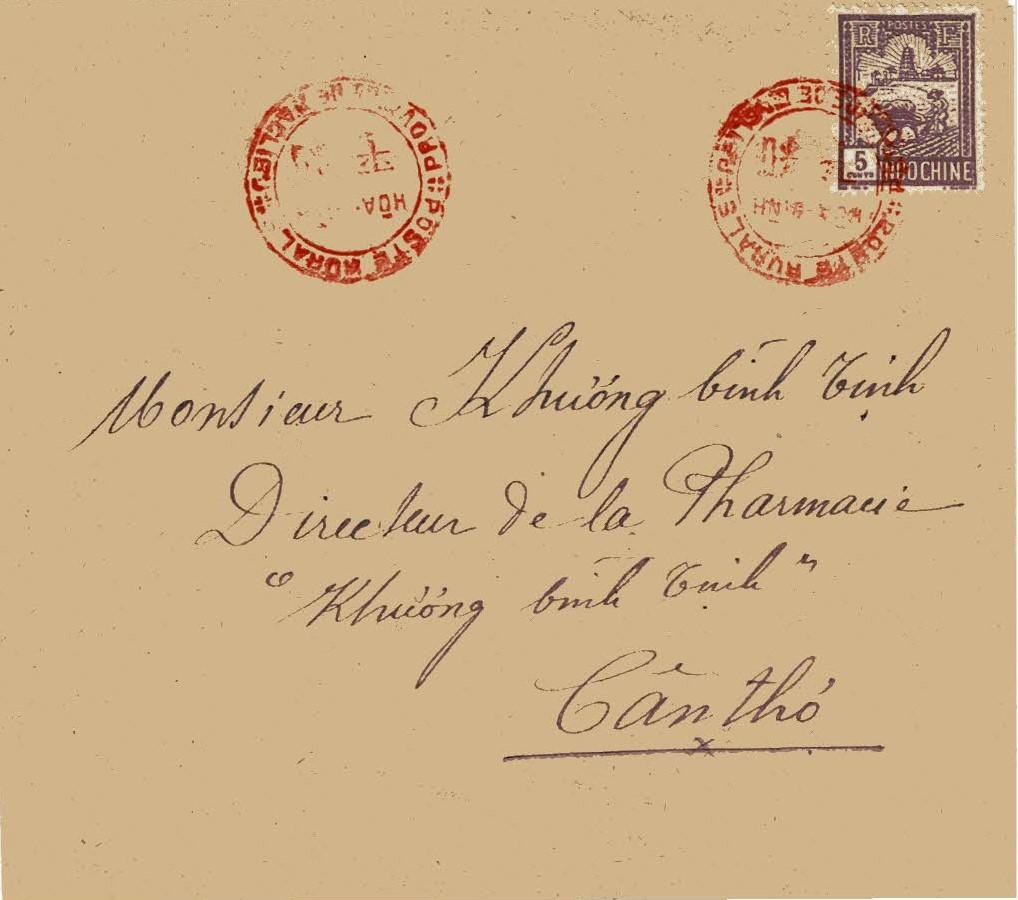 POSTES
R F
5
CENTS
INDOCHINE
POSTE RURALE
HÒA
POSTE RURALE
Monsieur Khương bình Tịnh
Directeur de la Pharmacie
“Khương bình Tịnh”
Cần thơ